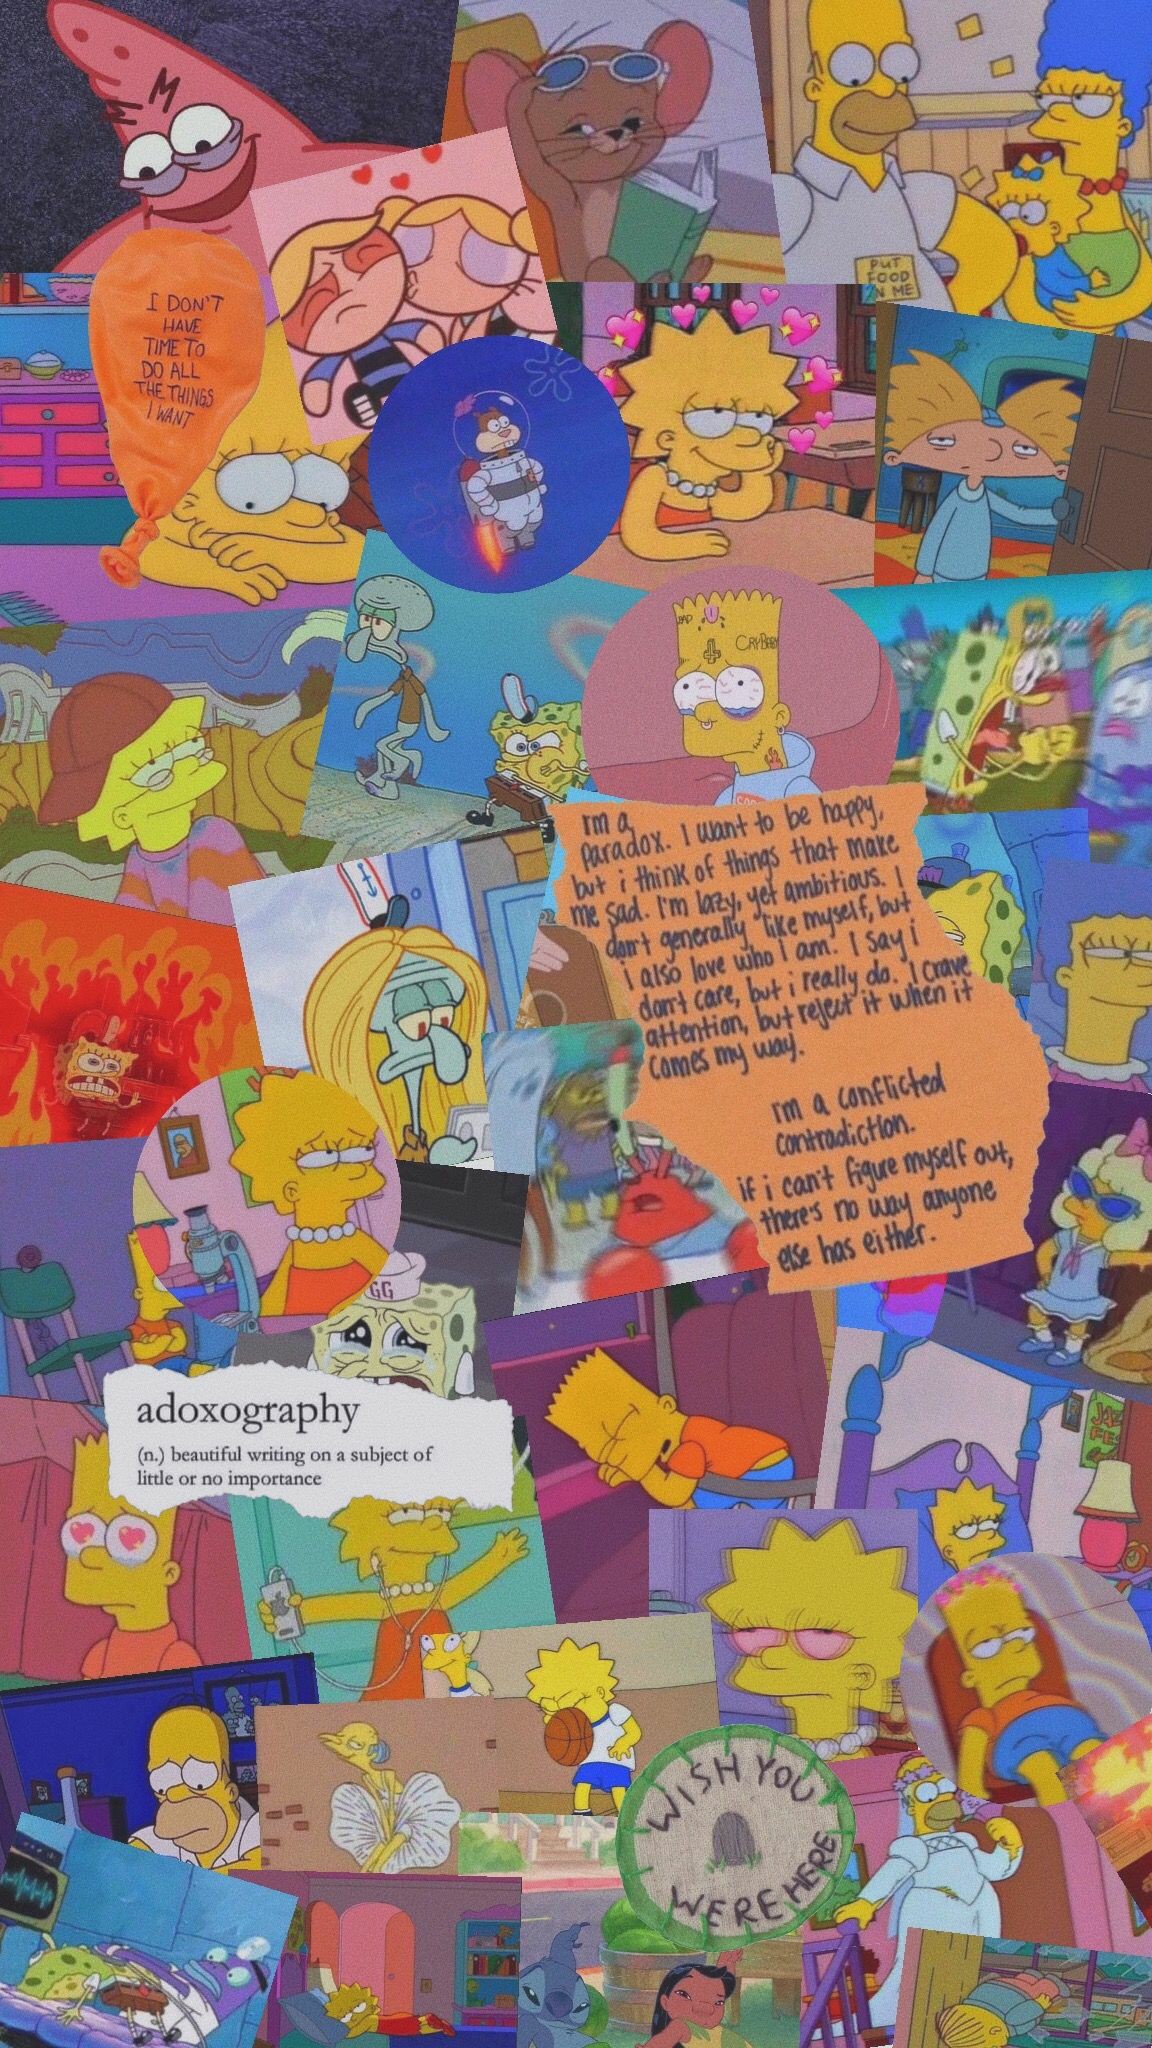 PUT
FOOD
IN ME
I DON'T
HAVE
TIME TO
DO ALL
THE THINGS
I WANT
BAD
CRYBABY
I'm a
paradox. I want to be happy,
but i think of things that make
me sad. I'm lazy, yet ambitious. I
don't generally like myself, but
i also love who i am. I say i
don't care, but i really do. I crave
attention, but reject it when it
comes my way.
I'm a conflicted
contradiction.
if i can't figure myself out,
there's no way anyone
else has either.
GG
adoxography
(n.) beautiful writing on a subject of
little or no importance
WISH YOU
WERE HERE